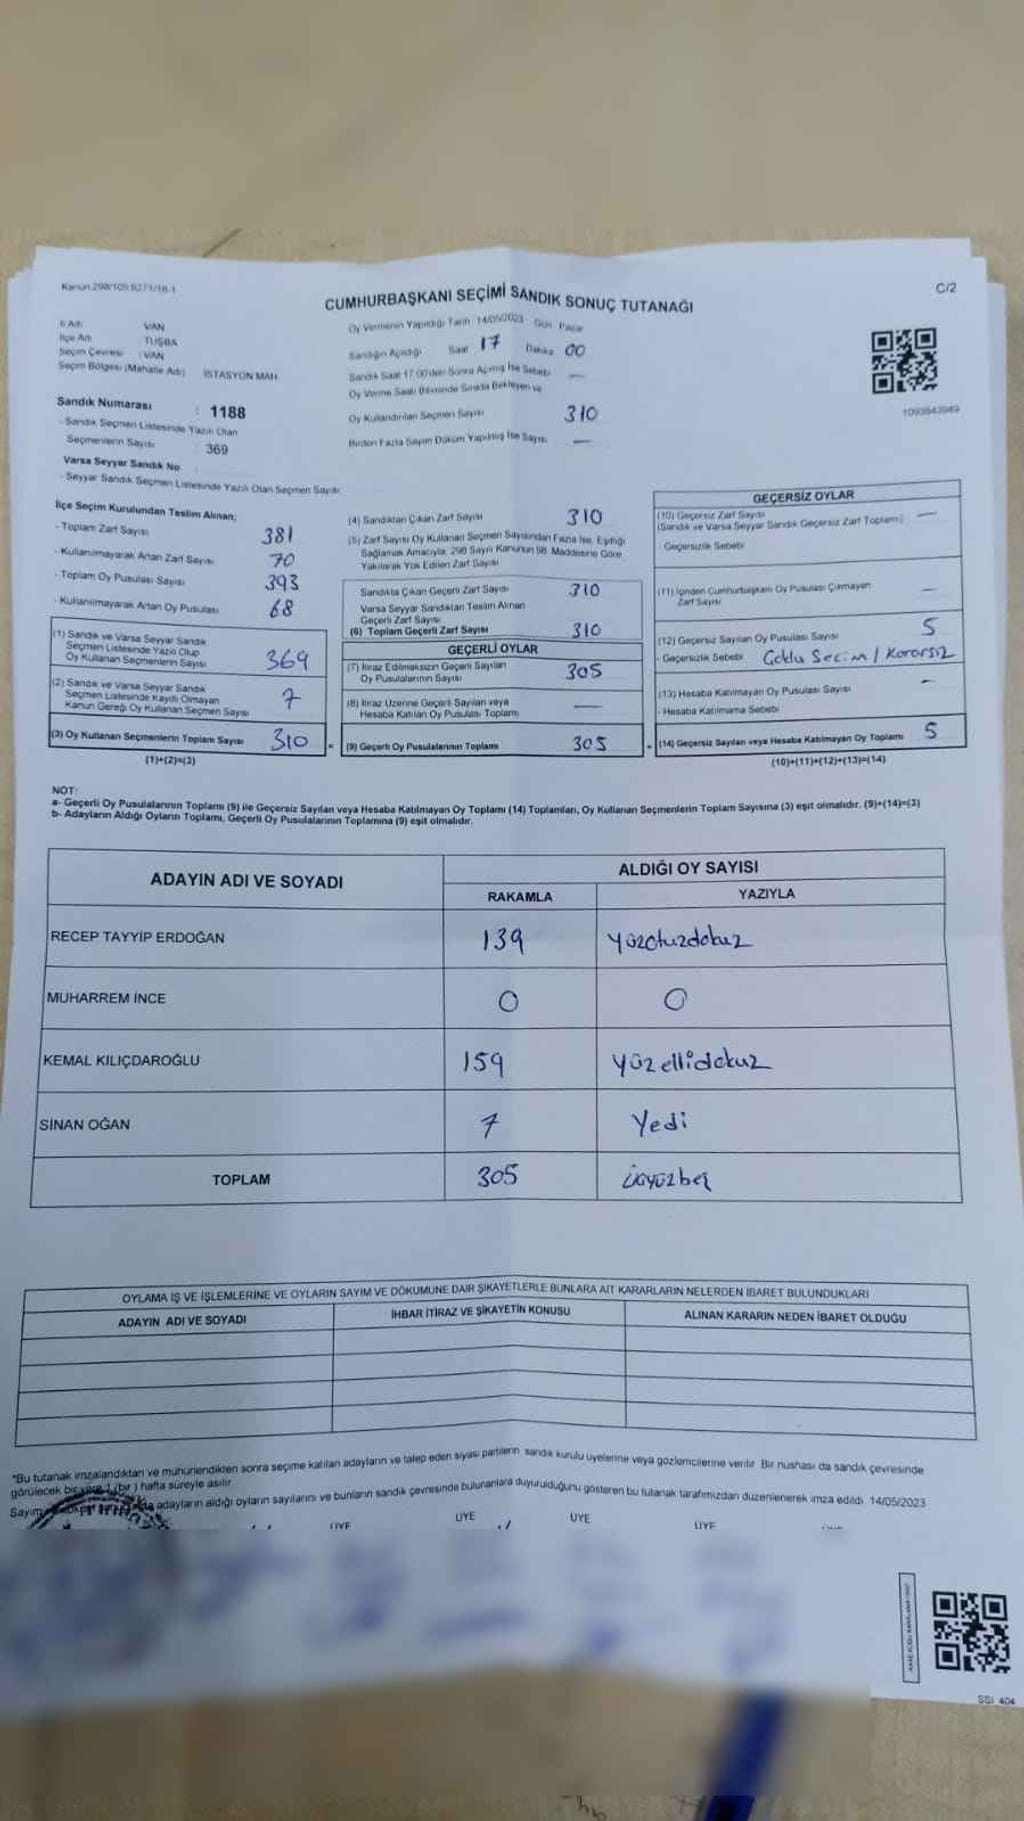 Kanun 298/105
C/2
CUMHURBAŞKANI SEÇİMİ SANDIK SONUÇ TUTANAĞI
İl Adı VAN
İlçe Adı TUŞBA
Seçim Çevresi : VAN
Seçim Bölgesi (Mahalle Adı) İSTASYON MAH.
Oy Vermenin Yapıldığı Tarih 14/05/2023 Gün Pazar
Sandığın Açıldığı Saat 17 Dakika 00
Sandık Saat 17.00'den Sonra Açılmış İse Sebebi —
Oy Verme Saati Bitiminde Sırada Bekleyen ve
Oy Kullandırılan Seçmen Sayısı 310
Birden Fazla Sayım Döküm Yapılmış İse Sayısı —
Sandık Numarası : 1188
- Sandık Seçmen Listesinde Yazılı Olan
Seçmenlerin Sayısı : 369
Varsa Seyyar Sandık No
- Seyyar Sandık Seçmen Listesinde Yazılı Olan Seçmen Sayısı
İlçe Seçim Kurulundan Teslim Alınan;
- Toplam Zarf Sayısı 381
- Kullanılmayarak Artan Zarf Sayısı 70
- Toplam Oy Pusulası Sayısı 393
- Kullanılmayarak Artan Oy Pusulası 68
(1) Sandık ve Varsa Seyyar Sandık
Seçmen Listesinde Yazılı Olup
Oy Kullanan Seçmenlerin Sayısı 369
(2) Sandık ve Varsa Seyyar Sandık
Seçmen Listesinde Kayıtlı Olmayan
Kanun Gereği Oy Kullanan Seçmen Sayısı 7
(3) Oy Kullanan Seçmenlerin Toplam Sayısı 310
(1)+(2)=(3)
(4) Sandıktan Çıkan Zarf Sayısı 310
(5) Zarf Sayısı Oy Kullanan Seçmen Sayısından Fazla İse, Eşitliği
Sağlamak Amacıyla, 298 Sayılı Kanunun 98. Maddesine Göre
Yakılarak Yok Edilen Zarf Sayısı
Sandıkta Çıkan Geçerli Zarf Sayısı 310
Varsa Seyyar Sandıktan Teslim Alınan
Geçerli Zarf Sayısı
(6) Toplam Geçerli Zarf Sayısı 310
GEÇERLİ OYLAR
(7) İtiraz Edilmeksizin Geçerli Sayılan
Oy Pusulalarının Sayısı 305
(8) İtiraz Üzerine Geçerli Sayılan veya
Hesaba Katılan Oy Pusulası Toplamı —
= (9) Geçerli Oy Pusulalarının Toplamı 305
GEÇERSİZ OYLAR
(10) Geçersiz Zarf Sayısı —
(Sandık ve Varsa Seyyar Sandık Geçersiz Zarf Toplamı)
- Geçersizlik Sebebi
(11) İçinden Cumhurbaşkanı Oy Pusulası Çıkmayan
Zarf Sayısı —
(12) Geçersiz Sayılan Oy Pusulası Sayısı 5
- Geçersizlik Sebebi Çoklu Secim / Kararsız
(13) Hesaba Katılmayan Oy Pusulası Sayısı —
- Hesaba Katılmama Sebebi
+ (14) Geçersiz Sayılan veya Hesaba Katılmayan Oy Toplamı 5
(10)+(11)+(12)+(13)=(14)
NOT:
a- Geçerli Oy Pusulalarının Toplamı (9) ile Geçersiz Sayılan veya Hesaba Katılmayan Oy Toplamı (14) Toplamları, Oy Kullanan Seçmenlerin Toplam Sayısına (3) eşit olmalıdır. (9)+(14)=(3)
b- Adayların Aldığı Oyların Toplamı, Geçerli Oy Pusulalarının Toplamına (9) eşit olmalıdır.
ADAYIN ADI VE SOYADI
ALDIĞI OY SAYISI
RAKAMLA YAZIYLA
RECEP TAYYİP ERDOĞAN 139 yüzotuzdokuz
MUHARREM İNCE 0 0
KEMAL KILIÇDAROĞLU 159 yüzellidokuz
SİNAN OĞAN 7 Yedi
TOPLAM 305 üçyüzbeş
OYLAMA İŞ VE İŞLEMLERİNE VE OYLARIN SAYIM VE DÖKÜMÜNE DAİR ŞİKAYETLERLE BUNLARA AİT KARARLARIN NELERDEN İBARET BULUNDUKLARI
ADAYIN ADI VE SOYADI İHBAR İTİRAZ VE ŞİKAYETİN KONUSU ALINAN KARARIN NEDEN İBARET OLDUĞU
*Bu tutanak imzalandıktan ve mühürlendikten sonra seçime katılan adayların ve talep eden siyasi partilerin sandık kurulu üyelerine veya gözlemcilerine verilir. Bir nüshası da sandık çevresinde
görülecek bir yere 1 (bir) hafta süreyle asılır.
Sayım adayların aldığı oyların sayılarını ve bunların sandık çevresinde bulunanlara duyurulduğunu gösteren bu tutanak tarafımızdan düzenlenerek imza edildi. 14/05/2023
ÜYE ÜYE ÜYE ÜYE
SSI 404